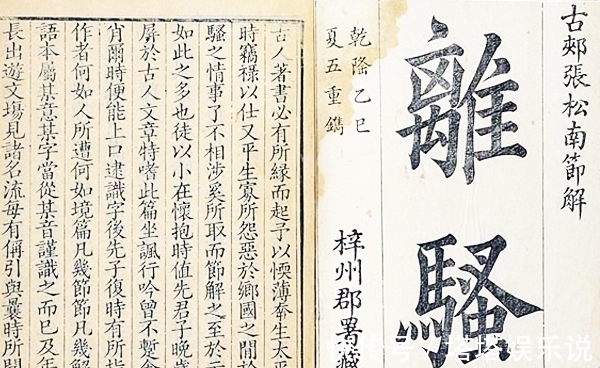 古郟張松南節解
離騷
乾隆乙巳
夏五重鐫
梓州郡署藏
古人著書必有所緣而起予以愞薄幸生太平
時竊祿以仕又平生寡所怨惡於鄉國之閒於
騷之情事了不相涉奚所取而節解之至於
如此之多也徒以小在懷抱時值先君子晚
屏於古人文章特嗜此篇坐諷行吟曾不蹔
肖爾時便能上口逮識字後先子復時有所指
作者何如人所遭何如境篇凡幾節節凡幾解
語本屬某意某字當從某音謹識之而已及年
長出遊文塲見諸名流每有偁引與曩時所聞
快传号·塔塔娱乐说